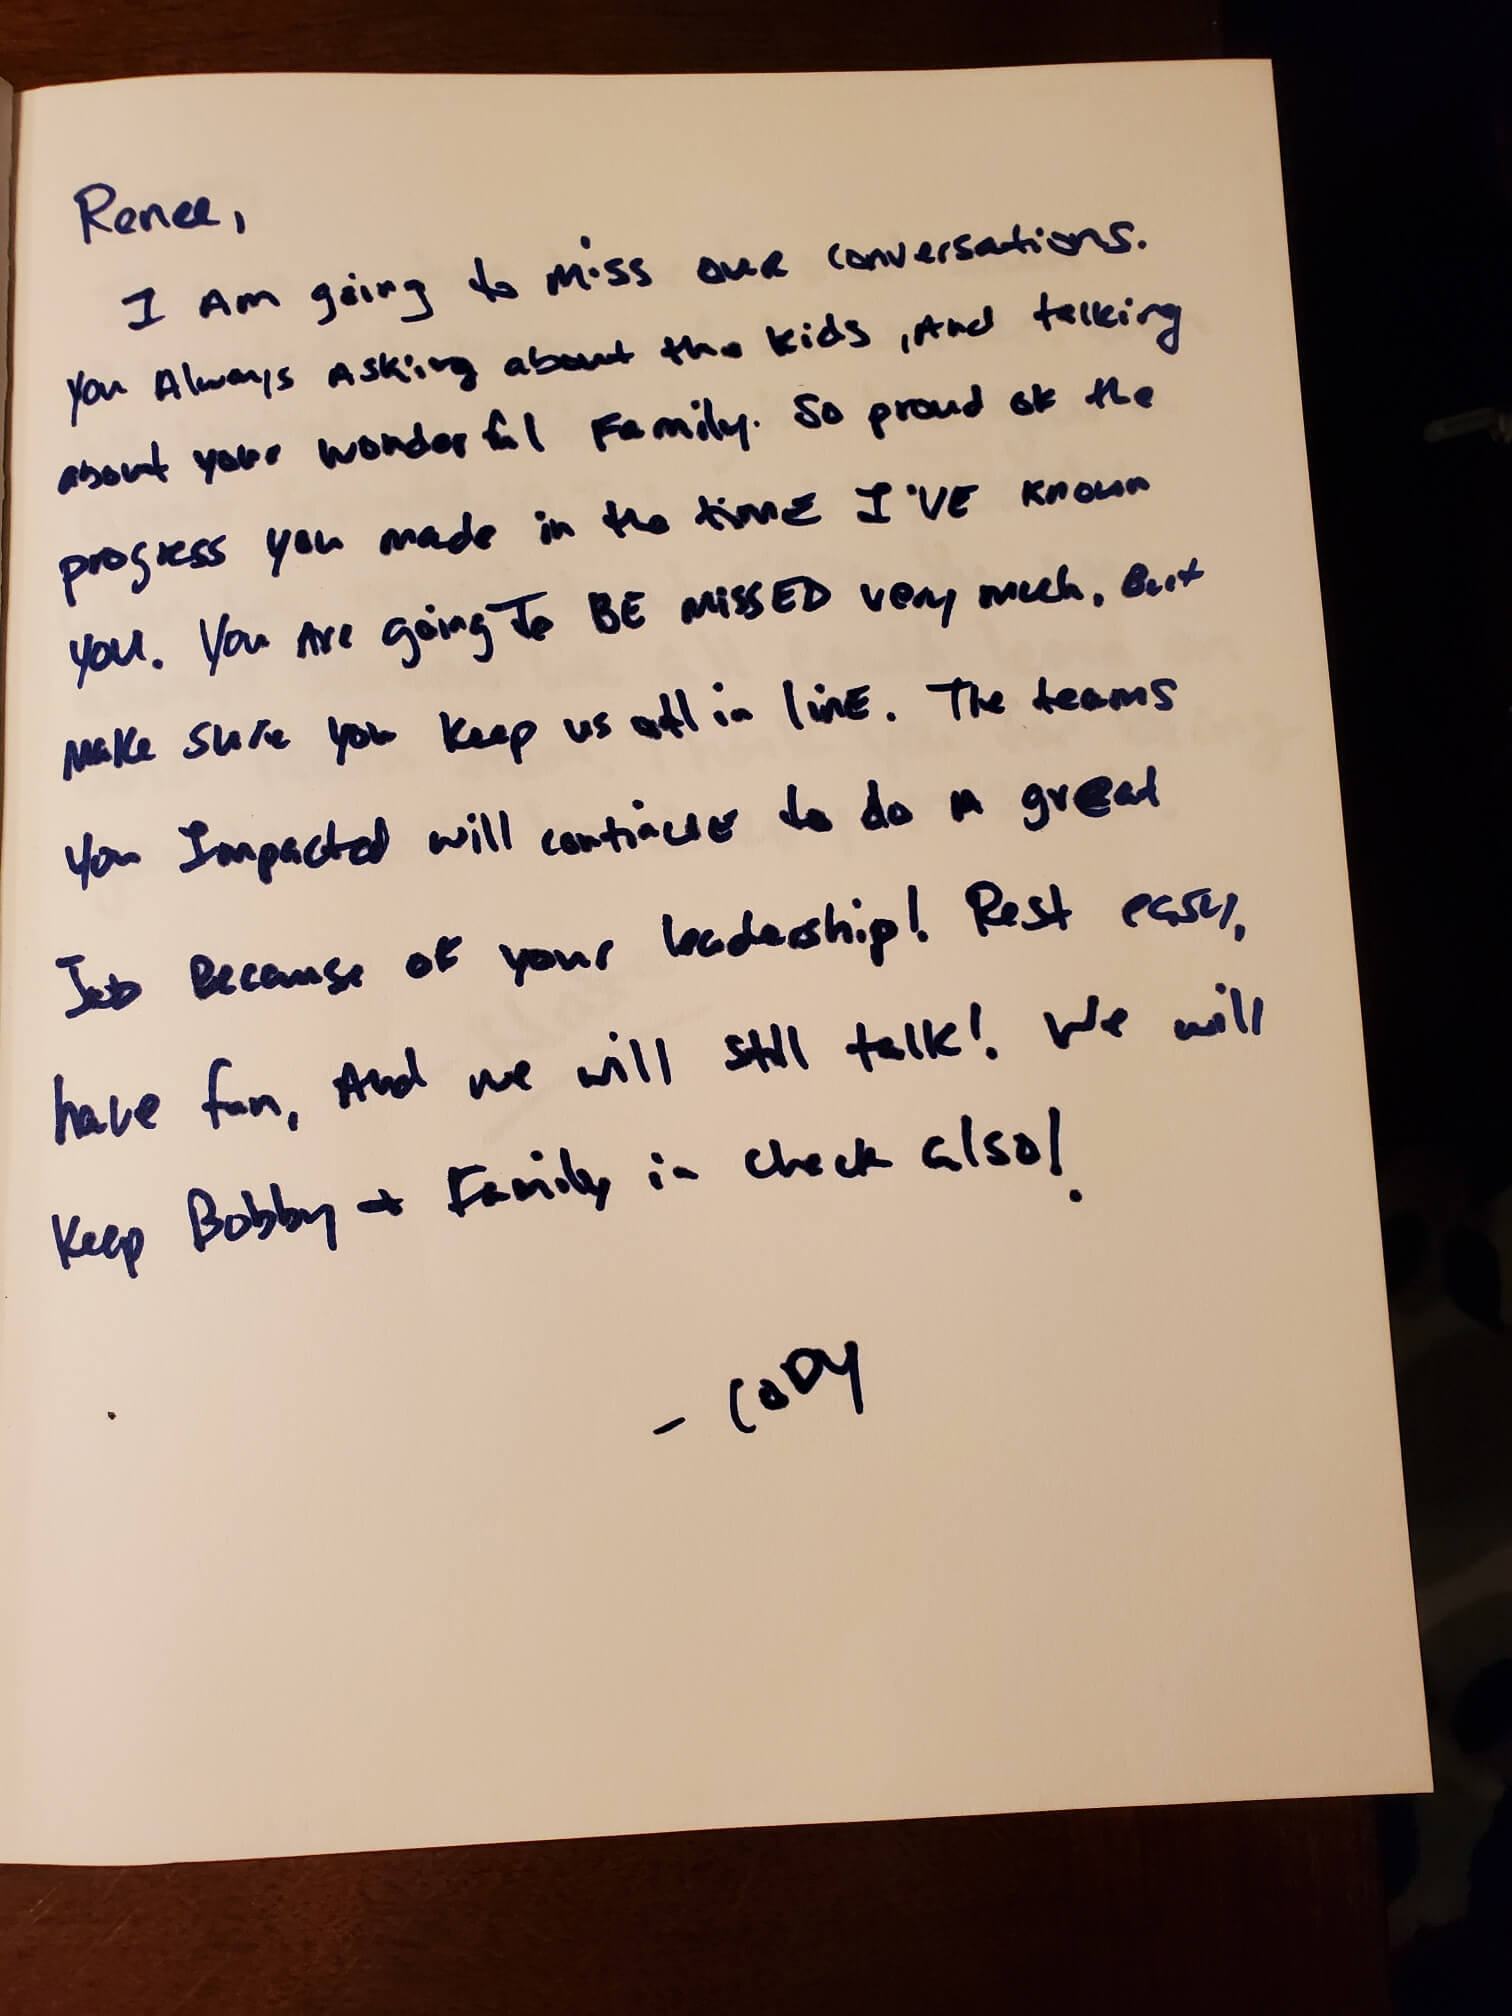 Renee,
I Am going to Miss our conversations.
you Always Asking about the kids, And talking
about your wonderful Family. So proud of the
progress you made in the time I'VE known
you. You Are going To BE MISSED very much, But
make sure you keep us all in line. The teams
you Impacted will continue to do A great
Job Because of your leadership! Rest easy,
have fun, And we will still talk! We will
keep Bobby + Family in check also!
- CODY